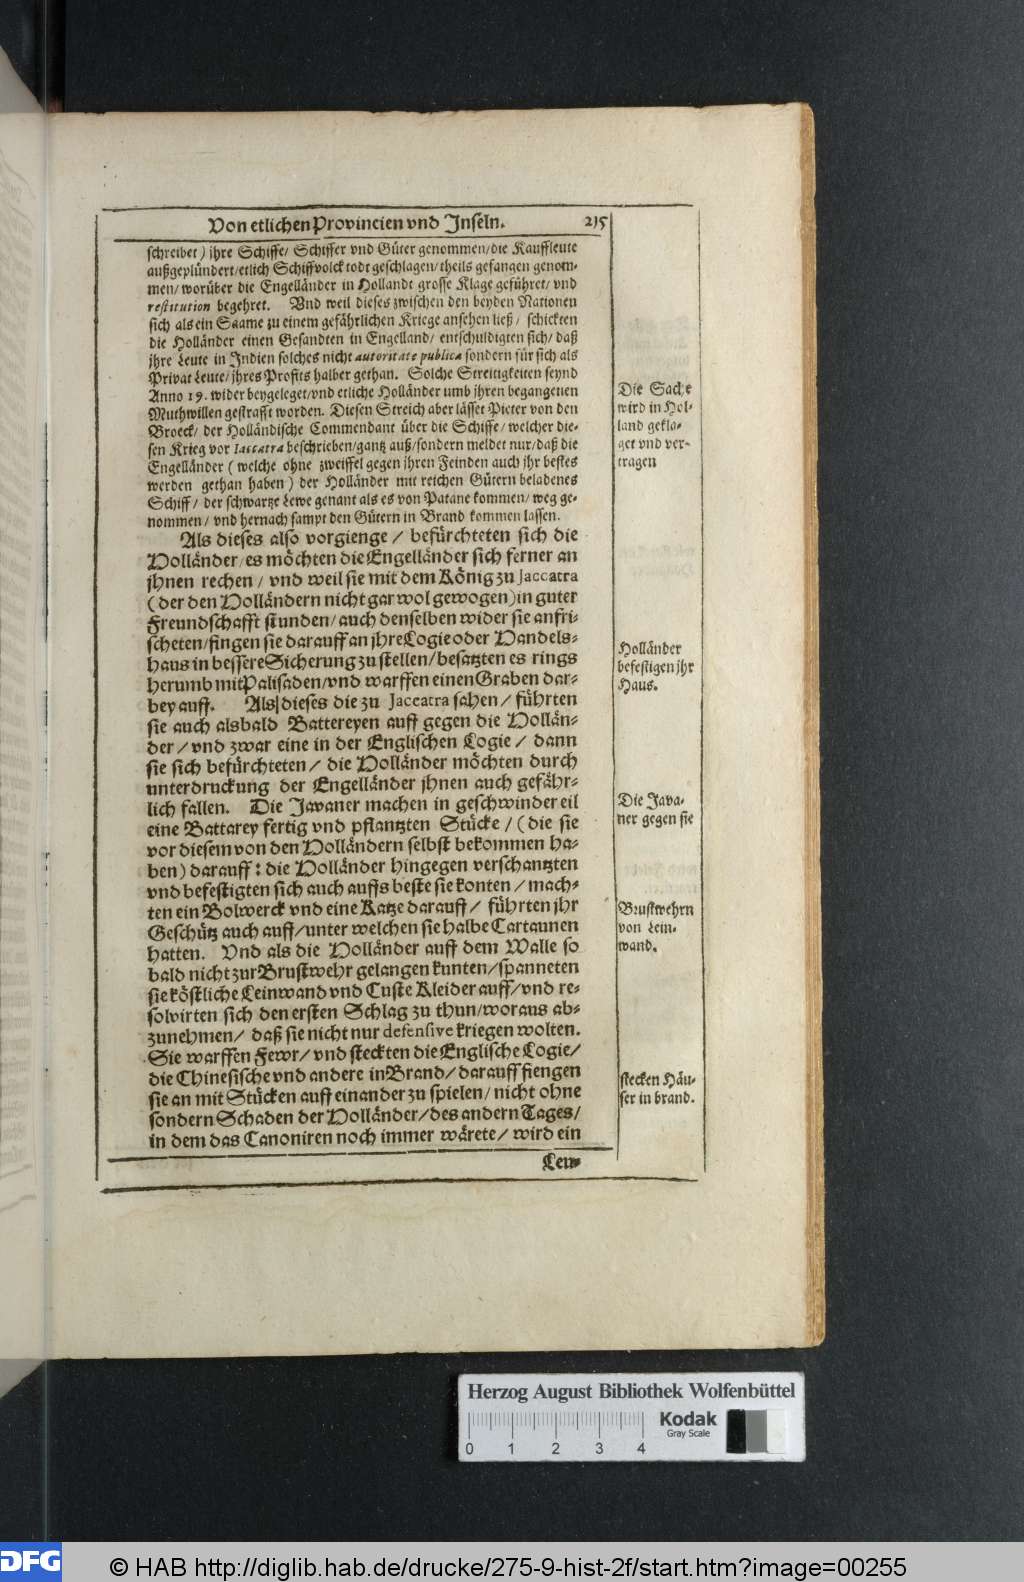 Von etlichen Provincien vnd Inseln. 215
schreibet) jhre Schiffe/ Schiffer vnd Güter genommen/die Kauffleute
außgeplündert/etlich Schiffvolck todt geschlagen/theils gefangen genom-
men/worüber die Engelländer in Hollandt grosse Klage geführet/vnd
restitution begehret. Vnd weil dieses zwischen den beyden Nationen
sich als ein Saame zu einem gefährlichen Kriege ansehen ließ/ schickten
die Holländer einen Gesandten in Engelland/ entschuldigten sich/daß
jhre Leute in Indien solches nicht autoritate publica sondern für sich als
Privat Leute/jhres Profits halber gethan. Solche Streitigkeiten seynd
Anno 19. wider beygeleget/vnd etliche Holländer umb jhren begangenen
Muthwillen gestrafft worden. Diesen Streich aber lässet Pieter von den
Broeck/ der Holländische Commendant über die Schiffe/welcher die-
sen Krieg vor Iaccatra beschrieben/gantz auß/sondern meldet nur/daß die
Engelländer (welche ohne zweiffel gegen jhren Feinden auch jhr bestes
werden gethan haben) der Holländer mit reichen Gütern beladenes
Schiff/ der schwartze Lewe genant als es von Patane kommen/weg ge-
nommen/ vnd hernach sampt den Gütern in Brand kommen lassen.
Als dieses also vorgienge/ befürchteten sich die
Holländer/es möchten die Engelländer sich ferner an
jhnen rechen/ vnd weil sie mit dem König zu Jaccatra
(der den Holländern nicht gar wol gewogen)in guter
Freundschafft stunden/auch denselben wider sie anfri-
scheten/fingen sie darauff an jhre Logie oder Handels-
haus in bessere Sicherung zu stellen/besatzten es rings
herumb mit Palisaden/vnd warffen einen Graben dar-
bey auff. Als dieses die zu Jaccatra sahen/ führten
sie auch alsbald Battereyen auff gegen die Hollän-
der/vnd zwar eine in der Englischen Logie/ dann
sie sich befürchteten/ die Holländer möchten durch
unterdruckung der Engelländer jhnen auch gefähr-
lich fallen. Die Javaner machen in geschwinder eil
eine Battarey fertig vnd pflantzten Stücke/ (die sie
vor diesem von den Holländern selbst bekommen ha-
ben) darauff: die Holländer hingegen verschantzten
vnd befestigten sich auch auffs beste sie konten/ mach-
ten ein Bolwerck vnd eine Katze darauff/ führten jhr
Geschütz auch auff/unter welchen sie halbe Cartaunen
hatten. Vnd als die Holländer auff dem Walle so
bald nicht zur Brustwehr gelangen kunten/spanneten
sie köstliche Leinwand vnd Custe Kleider auff/vnd re-
solvirten sich den ersten Schlag zu thun/woraus ab-
zunehmen/ daß sie nicht nur defensive kriegen wolten.
Sie warffen Fewr/ vnd steckten die Englische Logie/
die Chinesische vnd andere in Brand/darauff fiengen
sie an mit Stücken auff einander zu spielen/nicht ohne
sondern Schaden der Holländer/des andern Tages/
in dem das Canoniren noch immer wärete/ wird ein
Leu-
Die Sache
wird in Hol-
land gekla-
get vnd ver-
tragen
Holländer
befestigen jhr
Haus.
Die Java-
ner gegen sie
Brustwehrn
von Lein-
wand.
stecken Häu-
ser in brand.
Herzog August Bibliothek Wolfenbüttel
Kodak
Gray Scale
0 1 2 3 4
DFG
© HAB http://diglib.hab.de/drucke/275-9-hist-2f/start.htm?image=00255